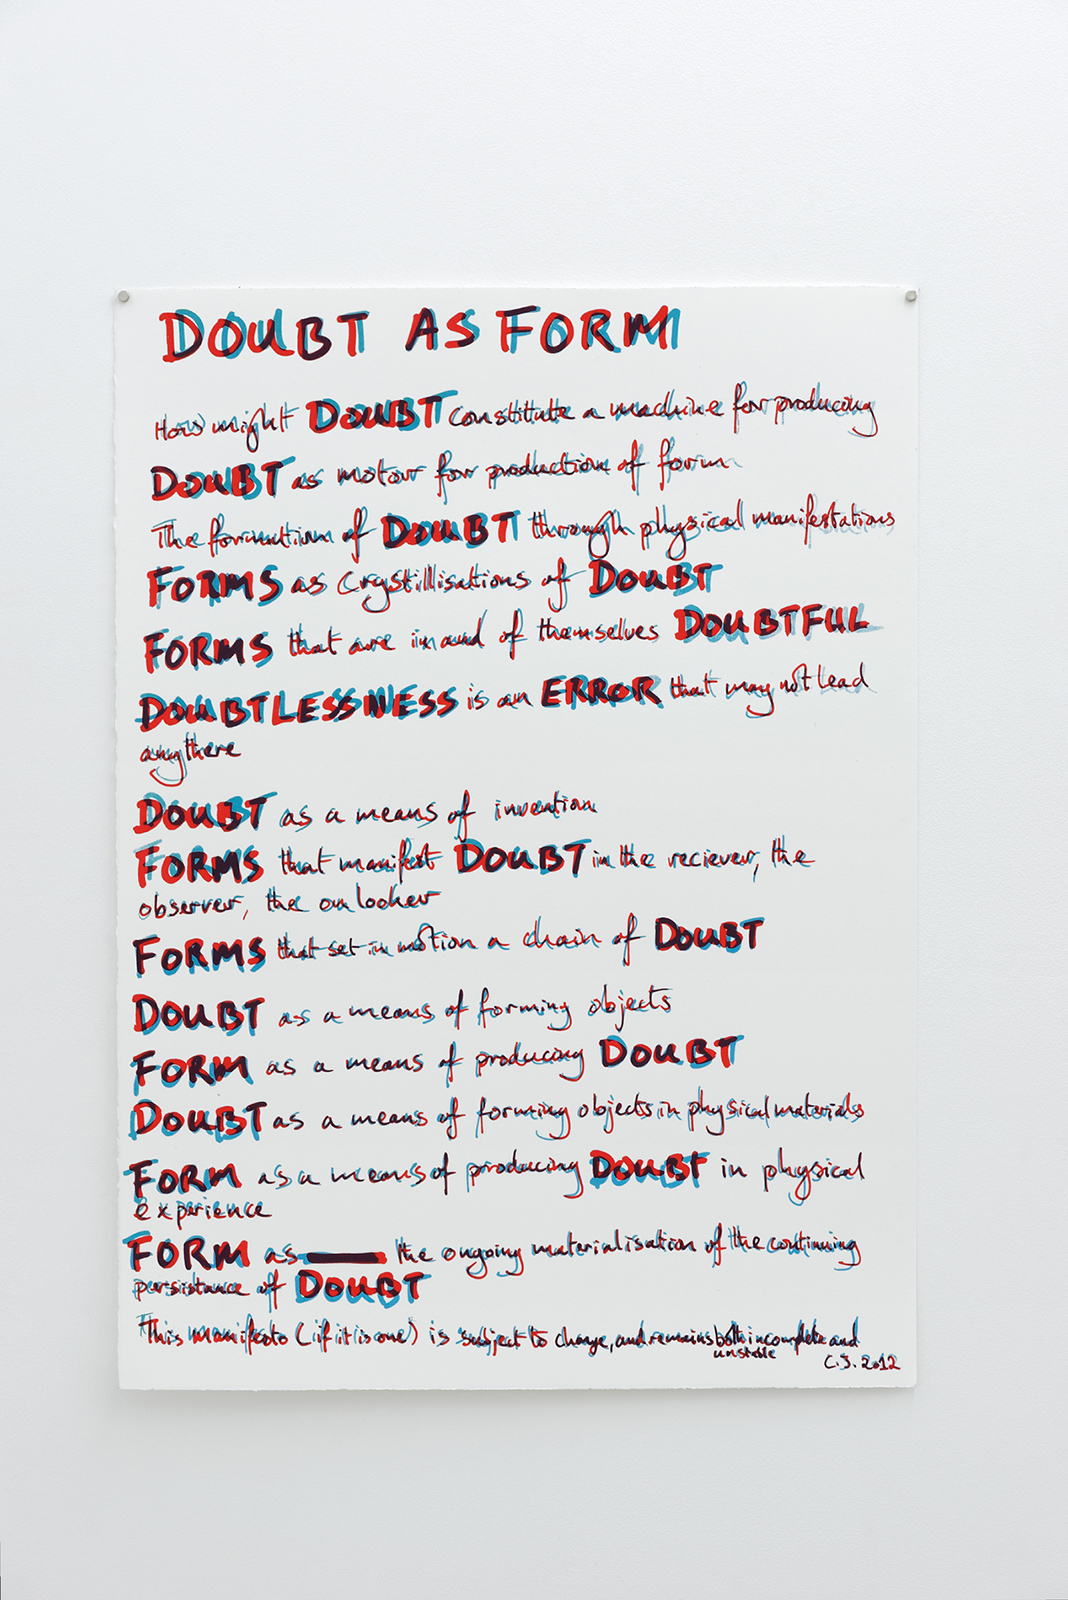 DOUBT AS FORM
How might DOUBT constitute a machine for producing
DOUBT as motor for production of form
The formation of DOUBT through physical manifestations
FORMS as Crystillisations of DOUBT
FORMS that are in and of themselves DOUBTFUL
DOUBTLESSNESS is an ERROR that may not lead
anythere
DOUBT as a means of invention
FORMS that manifest DOUBT in the reciever, the
observer, the onlooker
FORMS that set in motion a chain of DOUBT
DOUBT as a means of forming objects
FORM as a means of producing DOUBT
DOUBT as a means of forming objects in physical materials
FORM as a means of producing DOUBT in physical
experience
FORM as the ongoing materialisation of the continuing
persistance of DOUBT
This manifesto (if it is one) is subject to change, and remains both incomplete and
unstable
C.S. 2012